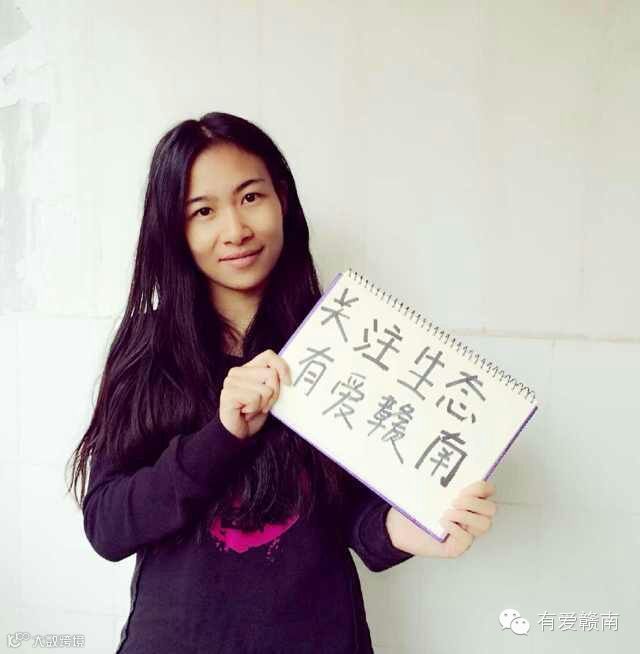 关注生态
有爱赣南
有爱赣南
大数跨境